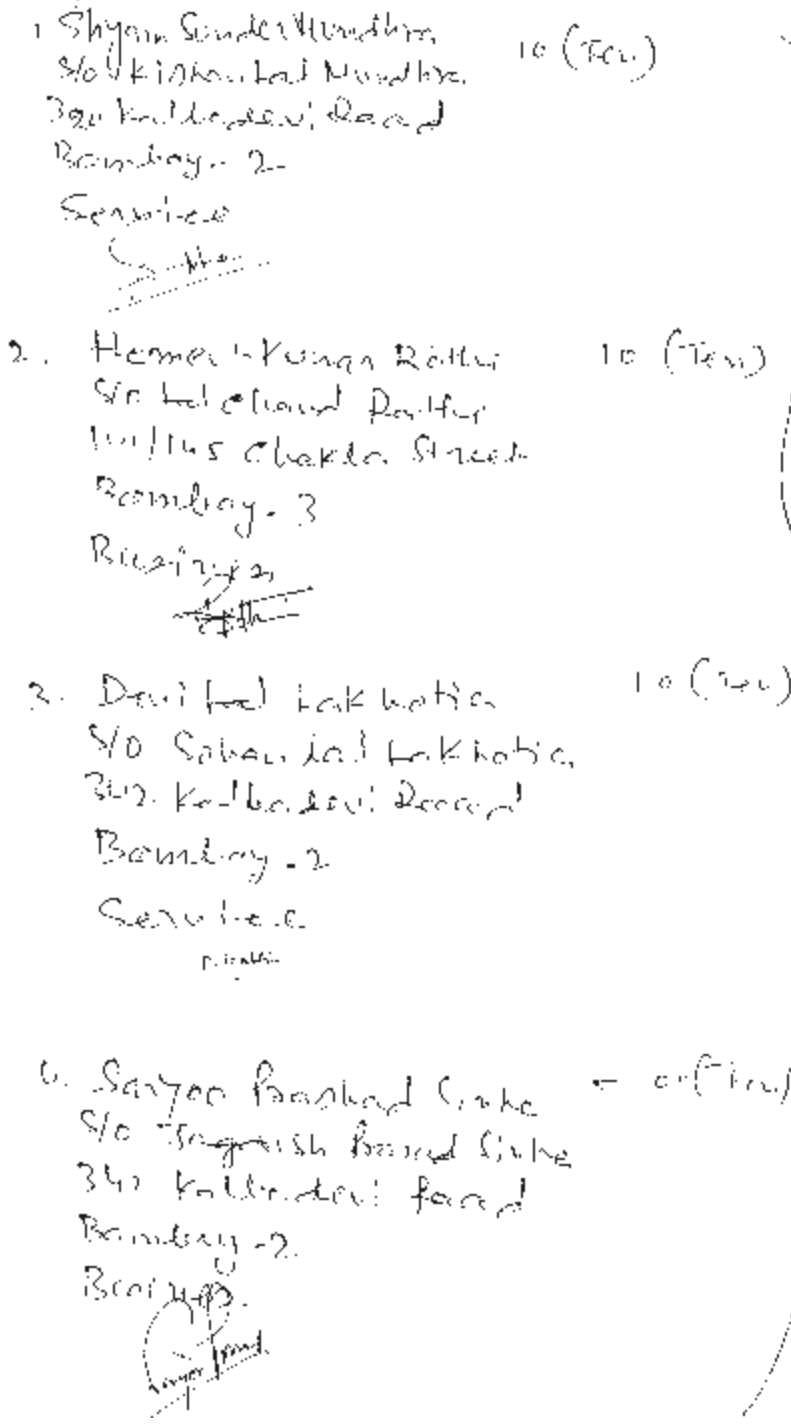 1 Shyam Sunder Mundhra 10 (Ten)
S/o Kishan Lal Mundhra
Kalbadevi Road
Bombay - 2
Service
2. Hemant Kumar Rathi 10 (Ten)
S/o Lal Chand Rathi
Chakla Street
Bombay - 3
Business
3. Devi Lal Lakhotia 10 (Ten)
S/o Sohan Lal Lakhotia
342. Kalbadevi Road
Bombay - 2
Service
Saryoo Prashad Sinha (Ten)
S/o Jagdish Prasad Sinha
342 Kalbadevi Road
Bombay - 2.
Business.